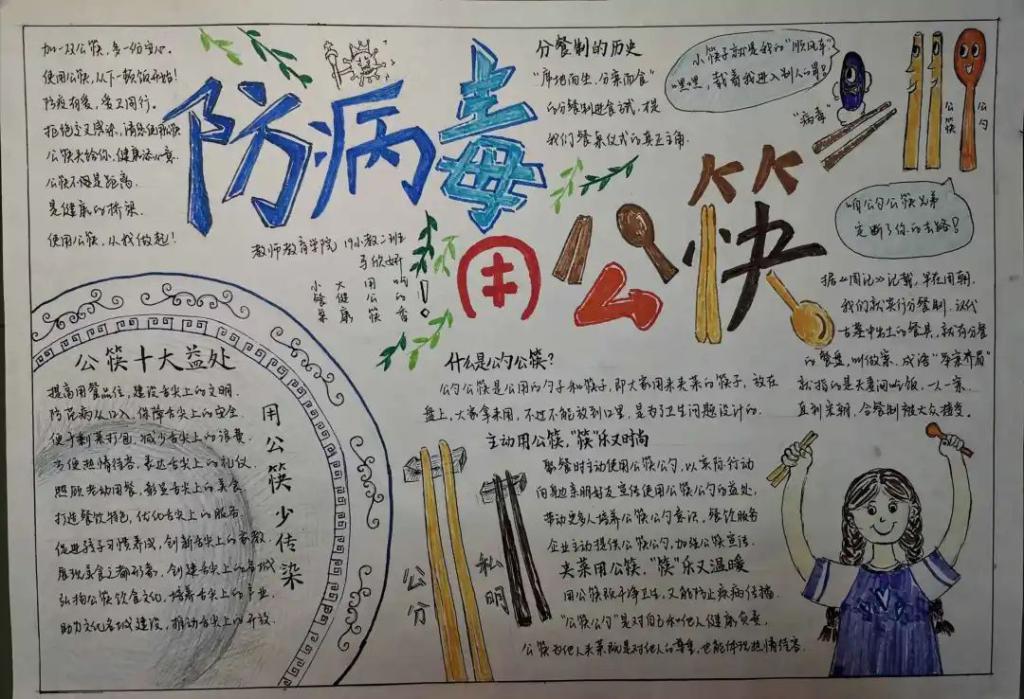 加一双公筷，多一份安心。
使用公筷，从下一顿饭开始！
防疫有爱，爱卫同行。
拒绝交叉感染，请您使用公筷
公筷夹给你，健康添心意。
公筷不但是距离，
是健康的桥梁。
使用公筷，从我做起！
防病毒
用公筷
分餐制的历史
"席地而坐，分案而食"
的分餐制进食方式，摆
我们餐桌仪式的真正主角.
小筷子就是我的"顺风车"
嘿嘿，载着我进入别人的胃！
"病毒"
公筷
公勺
咱公勺公筷兄弟
完断了你的去路！
教师教育学院 19小教二班
马欣妍
小餐桌
大健康
用公筷
吃的香！
据《周记》记载，早在周朝，
我们就实行分餐制. 汉代
古墓中出土的餐具，就有分餐
的餐盘，叫做案. 成语"举案齐眉"
就指的是夫妻间吃饭，一人一案.
直到宋朝，合餐制被大众接受。
什么是公勺公筷？
公勺公筷是公用的勺子和筷子，即大家用来夹菜的筷子，放在
盘上，大家拿来用，不过不能放到口里，是为了卫生问题设计的.
主动用公筷，"筷"乐又时尚
聚餐时主动使用公筷公勺，以实际行动
向身边亲朋好友宣传使用公筷公勺的益处，
带动更多人培养公筷公勺意识，餐饮服务
企业主动提供公筷公勺，加强公筷宣传.
夹菜用公筷，"筷"乐又温暖
用公筷既干净卫生，又能防止疾病传播.
"公筷公勺"是对自己和他人健康负责，
公筷为他人夹菜既是对他人的尊重，也能体现热情待客.
公筷十大益处
提高用餐品位，建设舌尖上的文明.
防范病从口入，保障舌尖上的安全.
便于剩菜打包，减少舌尖上的浪费.
方便热情待客，表达舌尖上的礼仪.
照顾老幼用餐，彰显舌尖上的美食.
打造餐饮特色，优化舌尖上的服务.
促进孩子习惯养成，创新舌尖上的家教.
展现美食之都形象，创建舌尖上的名城
弘扬公筷饮食文化，培养舌尖上的事业.
助力文化名城建设，推动舌尖上的开放.
用公筷少传染
公分
私明